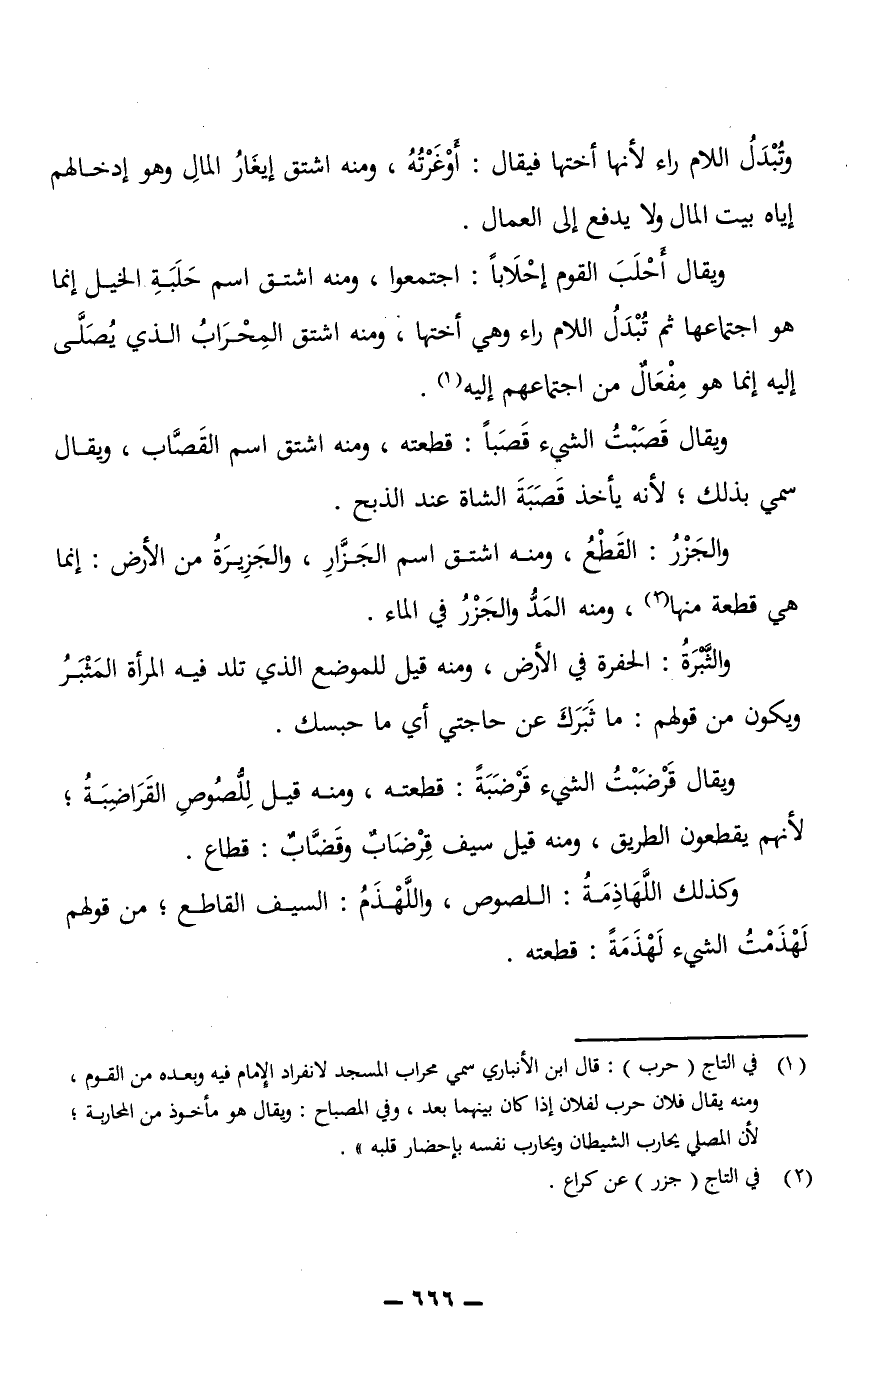 وتُبْدَلُ اللام راء لأنها أختها فيقال : أَوْغَرْتُهُ ، ومنه اشتق إيغَارُ المالِ وهو إدخالهم
إياه بيت المال ولا يدفع إلى العمال .
ويقال أَحْلَبَ القوم إحْلَاباً : اجتمعوا ، ومنه اشتق اسم حَلَبَةِ الخيل إنما
هو اجتماعها ثم تُبْدَلُ اللام راء وهي أختها ، ومنه اشتق المِحْرَابُ الذي يُصَلَّى
إليه إنما هو مِفْعَالٌ من اجتماعهم إليه(١) .
ويقال قَصَبْتُ الشيء قَصَباً : قطعته ، ومنه اشتق اسم القَصَّاب ، ويقال
سمي بذلك ؛ لأنه يأخذ قَصَبَةَ الشاة عند الذبح .
والجَزْرُ : القَطْعُ ، ومنه اشتق اسم الجَزَّارِ ، والجَزِيرَةُ من الأرض : إنما
هي قطعة منها(٢) ، ومنه المَدُّ والجَزْرُ في الماء .
والثَّبْرَةُ : الحفرة في الأرض ، ومنه قيل للموضع الذي تلد فيه المرأة المَثْبَرُ
ويكون من قولهم : ما ثَبَرَكَ عن حاجتي أي ما حبسك .
ويقال قَرْضَبْتُ الشيء قَرْضَبَةً : قطعته ، ومنه قيل لِلُّصُوصِ القَرَاضِبَةُ ؛
لأنهم يقطعون الطريق ، ومنه قيل سيف قِرْضَابٌ وقَضَّابٌ : قطاع .
وكذلك اللَّهَاذِمَةُ : اللصوص ، واللَّهْذَمُ : السيف القاطع ؛ من قولهم
لَهْذَمْتُ الشيء لَهْذَمَةً : قطعته .
(١) في التاج ( حرب ) : قال ابن الأنباري سمي محراب المسجد لانفراد الإمام فيه وبعده من القوم ،
ومنه يقال فلان حرب لفلان إذا كان بينهما بعد ، وفي المصباح : ويقال هو مأخوذ من المحاربة ؛
لأن المصلي يحارب الشيطان ويحارب نفسه بإحضار قلبه » .
(٢) في التاج ( جزر ) عن كراع .
– ٦٦٦ –